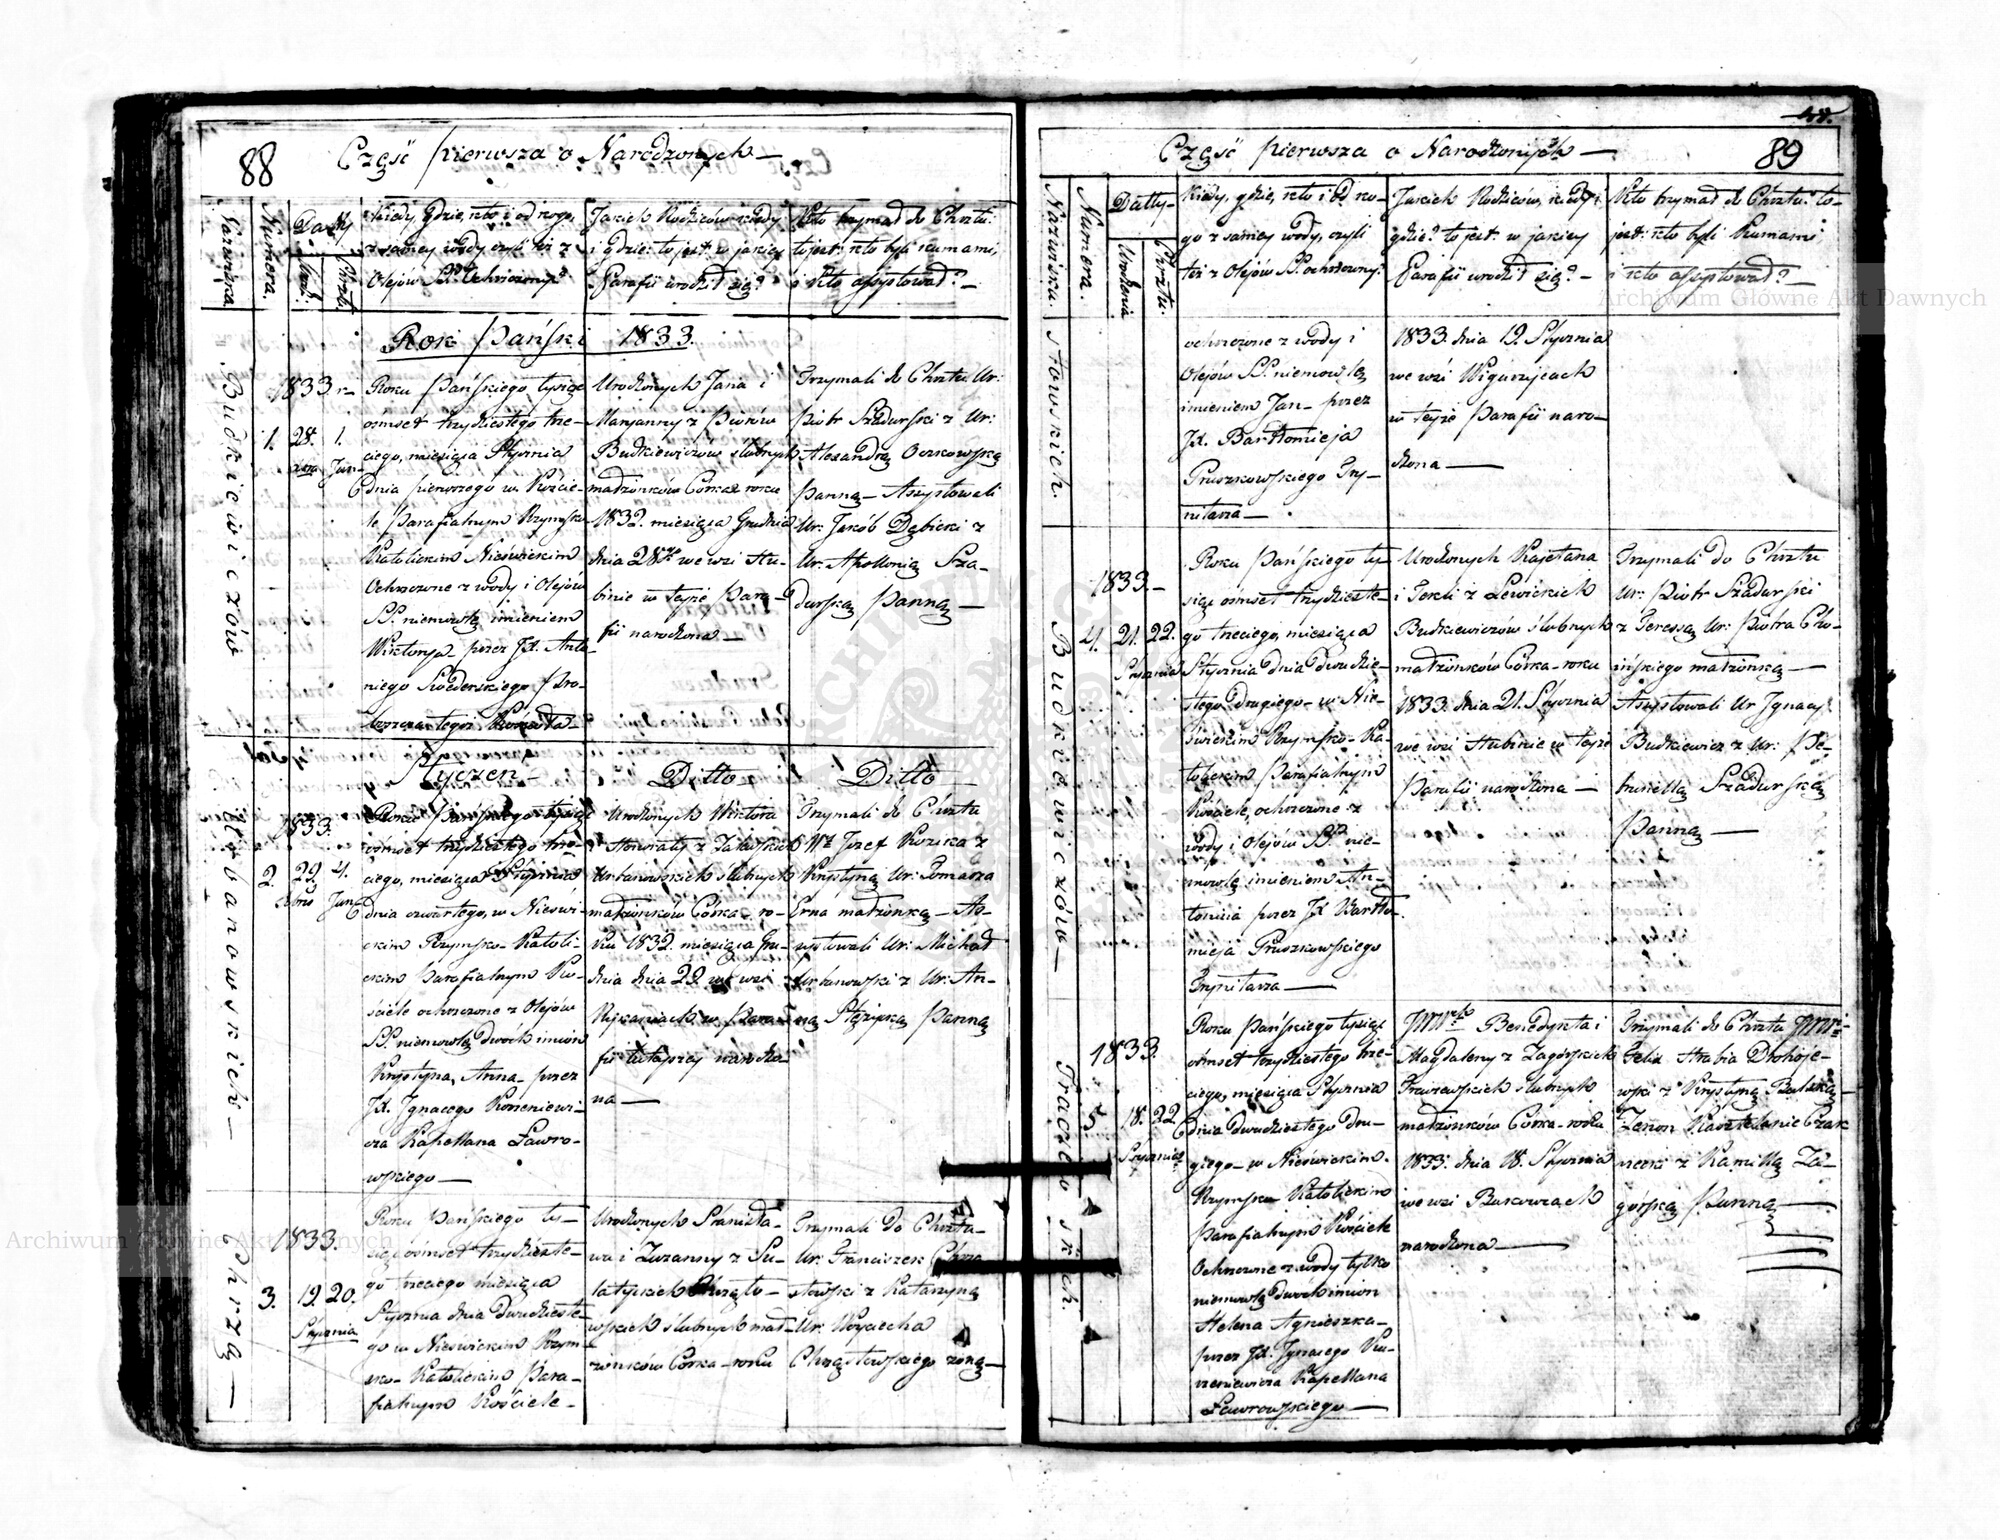 88
Część pierwsza o Narodzonych —
Nazwiska.
Numera.
Datty
Urodz:
Chrztu
Kiedy, gdzie, kto i od kogo,
z samey wody czyli też z
Olejów SS. Ochrzczony?
Jakich Rodziców, kiedy
i gdzie: to jest: w jakiey
Parafii urodził się?
Kto trzymał do Chrztu:
to jest: kto byli kumami,
i Kto assystował? —
Rok Pański 1833.
Budkiewiczów
1833 r.
1.
28.
1.
Roku Pańskiego tysiąc
ośmset trzydziestego trze-
ciego, miesiąca Stycznia
dnia pierwszego w Koście-
le Parafialnym Rzymsko
Katolickim Nieświckim
Ochrzczone z wody i Olejów
SS. niemowlę imieniem
Wiktorya przez JX. Anto-
niego
Urodzonych Jana i
Maryanny z Piorów
Budkiewiczów ślubnych
małżonków Córka z roku
1832. miesiąca Grudnia
dnia 28go we wsi Hu-
binie w teyże Para-
fii narodzona —
Trzymali do Chrztu Ur:
Piotr Szadurski z Ur:
Alexandrą Oczkowską
Panną — Assystowali
Ur: Jakób Dębicki z
Ur. Apollonią Sza-
durską Panną —
Styczeń —
Ditto
Ditto
Urbanowskich —
1833.
2.
29.
4.
Roku Pańskiego tysiąc
ośmset trzydziestego trze-
ciego, miesiąca Stycznia
dnia czwartego, w Nieświ-
ckim Rzymsko-Katoli-
ckim Parafialnym Ko-
ściele ochrzczone z Olejów
SS. niemowlę dwóch imion
Krystyna, Anna — przez
JX. Ignacego Korzeniewi-
cza Kapellana Ławro-
wskiego —
Urodzonych Wiktora
i Honoraty z
Urbanowskich ślubnych
małżonków Córka — ro-
ku 1832. miesiąca Gru-
dnia dnia 29. we wsi
w Para-
fii tutejszey narodzo-
na —
Trzymali do Chrztu
Józef Kozika z
Krystyną Ur. Tomasza
Erna małżonką — As-
systowali Ur: Michał
Urbanowski z Ur: An-
ną Panną
Chrzą —
1833.
3.
19.
20.
Stycznia
Roku Pańskiego ty-
siąc ośmset trzydzieste-
go trzeciego miesiąca
Stycznia dnia dwudzieste-
go w Nieświckim Rzym-
sko-Katolickim Para-
fialnym Kościele —
Urodzonych Stanisła-
wa i Zuzanny z Su-
latyckich Chrząsto-
wskich ślubnych mał-
żonków Córka — roku
Trzymali do Chrztu —
Ur: Franciszek Chrzą-
stowski z Katarzyną
Ur: Woyciecha
Chrząstowskiego żoną —
89
Część pierwsza o Narodzonych —
Nazwiska
Numera.
Datty
Urodzenia
Chrztu.
Kiedy, gdzie, kto i od ko-
go z samey wody, czyli
też z Olejów SS. ochrzczony?
Jakich Rodziców, kiedy i
gdzie? to jest: w jakiey
Parafii urodził się? —
Kto trzymał do Chrztu: to-
jest: kto byli Kumami
i kto assystował? —
stowskich.
ochrzczone z wody i
Olejów SS. niemowlę
imieniem Jan — przez
JX. Bartłomieja
Pruszkowskiego Try-
nitarza —
1833. dnia 19. Stycznia
we wsi Wiguczycach
w teyże Parafii naro-
dzona —
Budkiewiczów —
1833. —
4.
21.
22.
Stycznia
Roku Pańskiego ty-
siąc ośmset trzydzieste-
go trzeciego, miesiąca
Stycznia dnia dwudzie-
stego drugiego — w Nie-
świckim Rzymsko-Ka-
tolickim Parafialnym
Kościele, ochrzczone z
wody i Olejów SS. nie-
mowlę imieniem An-
tonina przez JX. Bartło-
mieja Pruszkowskiego
Trynitarza —
Urodzonych Kajetana
i Tekli z Lewickich
Budkiewiczów ślubnych
małżonków Córka — roku
1833. dnia 21. Stycznia
we wsi Hubinie w teyże
Parafii narodzona —
Trzymali do Chrztu
Ur: Piotr Szadurski
z Teressą Ur: Piotra Cho-
ińskiego małżonką —
Assystowali Ur Ignacy
Budkiewicz z Ur: Pe-
trunellą Szadurską
Panną —
1833.
5
18.
22
Stycznia
Roku Pańskiego tysiąc
ośmset trzydziestego trze-
ciego, miesiąca Stycznia
dnia dwudziestego dru-
giego — w Nieświckim.
Rzymsko Katolickim
Parafialnym Kościele
Ochrzczone z wody tylko
niemowlę dwóch imion
Helena Agnieszka —
przez JX. Ignacego Ko-
rzeniewicza Kapellana
Ławrowskiego —
Benedykta i
Magdaleny z Zagórskich
ślubnych
małżonków Córka — roku
1833. dnia 18. Stycznia
we wsi
narodzona —
Trzymali do Chrztu
Felix Hrabia Drohoje-
wski z Krystyną —
Zenon Kasztelanic Czar
necki z Kamillą Za-
górską Panną —
Archiwum Główne Akt Dawnych
Archiwum Główne Akt Dawnych